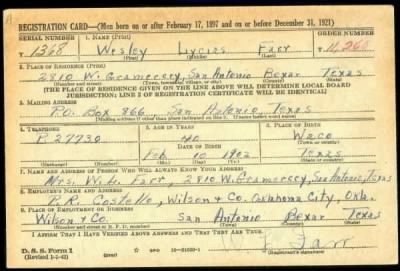 REGISTRATION CARD—(Men born on or after February 17, 1897 and on or before December 31, 1921)
SERIAL NUMBER 1. NAME (Print) ORDER NUMBER
T 1368 Wesley Lycias Farr T 11,260
(First) (Middle) (Last)
2. PLACE OF RESIDENCE (Print)
2810 W. Gramercy, San Antonio Bexar Texas
(THE PLACE OF RESIDENCE GIVEN ON THE LINE ABOVE WILL DETERMINE LOCAL BOARD
JURISDICTION; LINE 2 OF REGISTRATION CERTIFICATE WILL BE IDENTICAL)
3. MAILING ADDRESS
P.O. Box 866 San Antonio, Texas
(Mailing address if other than place indicated on line 2. If same insert word same)
4. TELEPHONE 5. AGE IN YEARS 6. PLACE OF BIRTH
P. 27730 40 Waco
DATE OF BIRTH
Feb 10 1902 Texas
(Mo.) (Day) (Yr.)
7. NAME AND ADDRESS OF PERSON WHO WILL ALWAYS KNOW YOUR ADDRESS
Mrs. W. L. Farr, 2810 W. Gramercy, San Antonio, Texas
8. EMPLOYER'S NAME AND ADDRESS
P. R. Costello, Wilson & Co. Oklahoma City, Okla.
9. PLACE OF EMPLOYMENT OR BUSINESS
Wilson & Co. San Antonio Bexar Texas
(Number and street or R. F. D. number) (Town) (County) (State)
I AFFIRM THAT I HAVE VERIFIED ABOVE ANSWERS AND THAT THEY ARE TRUE.
D. S. S. Form 1
(Revised 1-1-42)
Farr